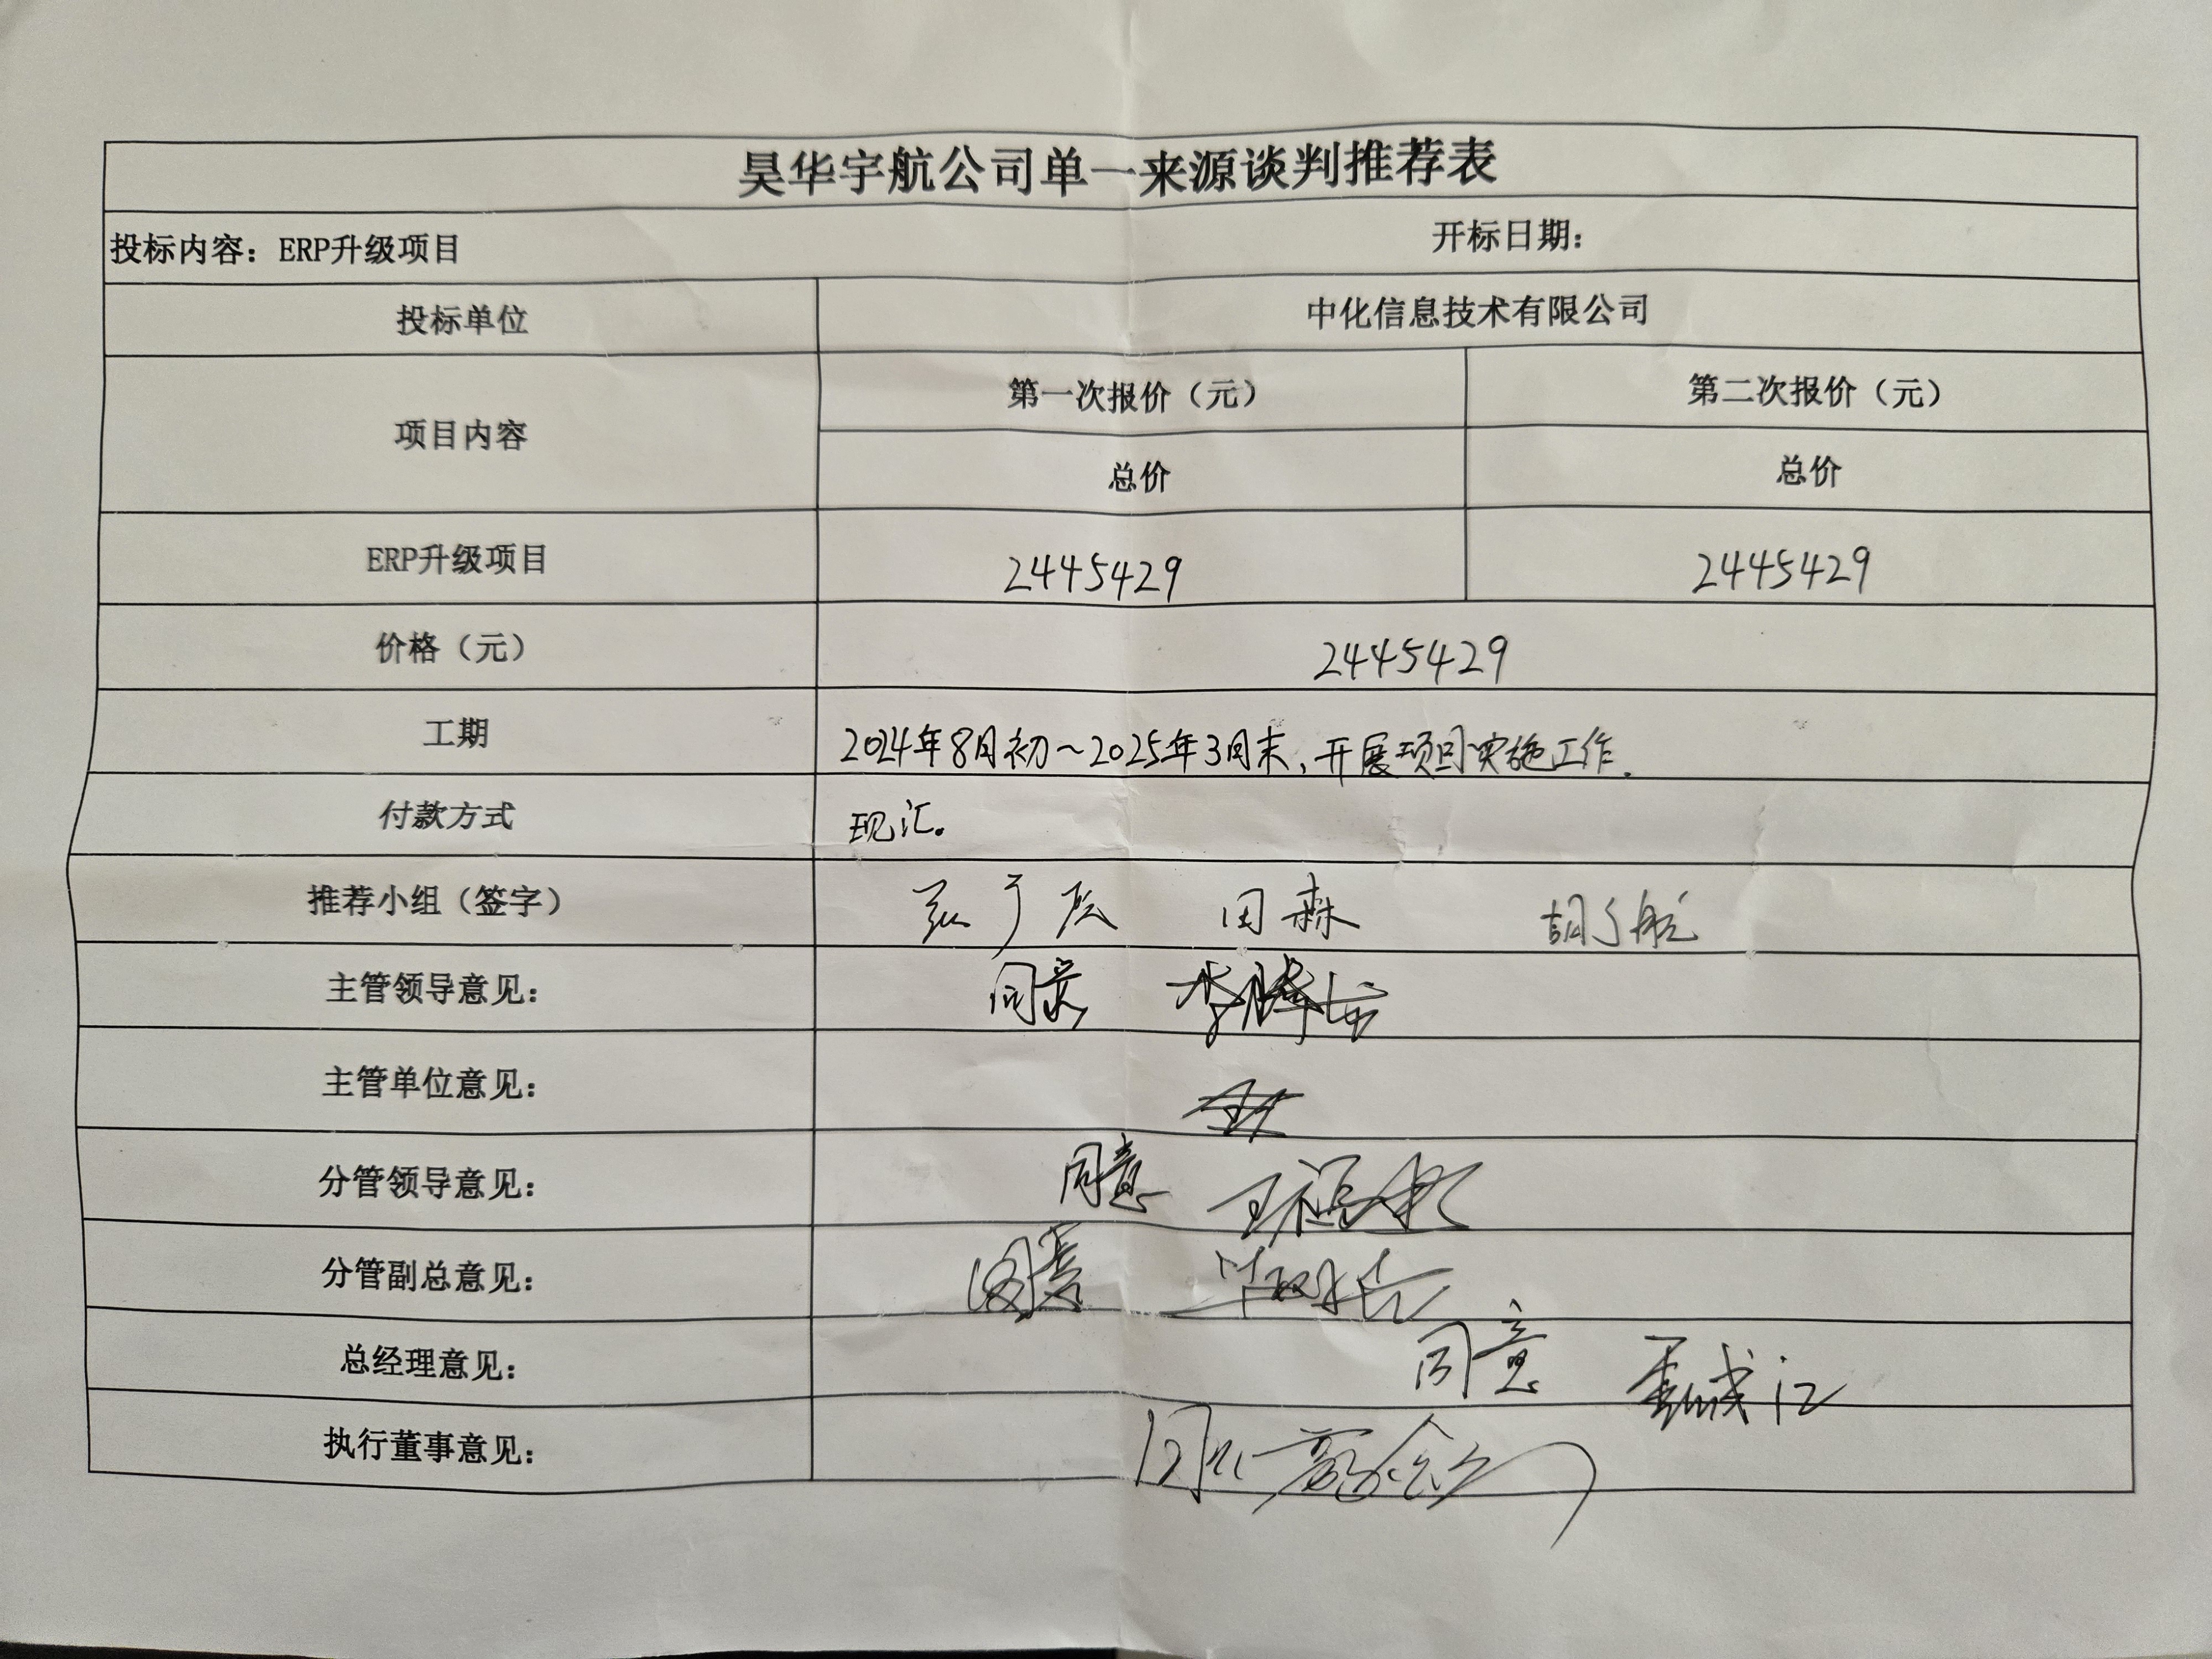 昊华宇航公司单一来源谈判推荐表
投标内容：ERP升级项目 开标日期：
投标单位 中化信息技术有限公司
项目内容 第一次报价（元） 第二次报价（元）
总价 总价
ERP升级项目 2445429 2445429
价格（元） 2445429
工期 2024年8月初~2025年3月末，开展项目实施工作.
付款方式 现汇。
推荐小组（签字） 田森
主管领导意见： 同意
主管单位意见：
分管领导意见： 同意
分管副总意见： 同意
总经理意见： 同意
执行董事意见：